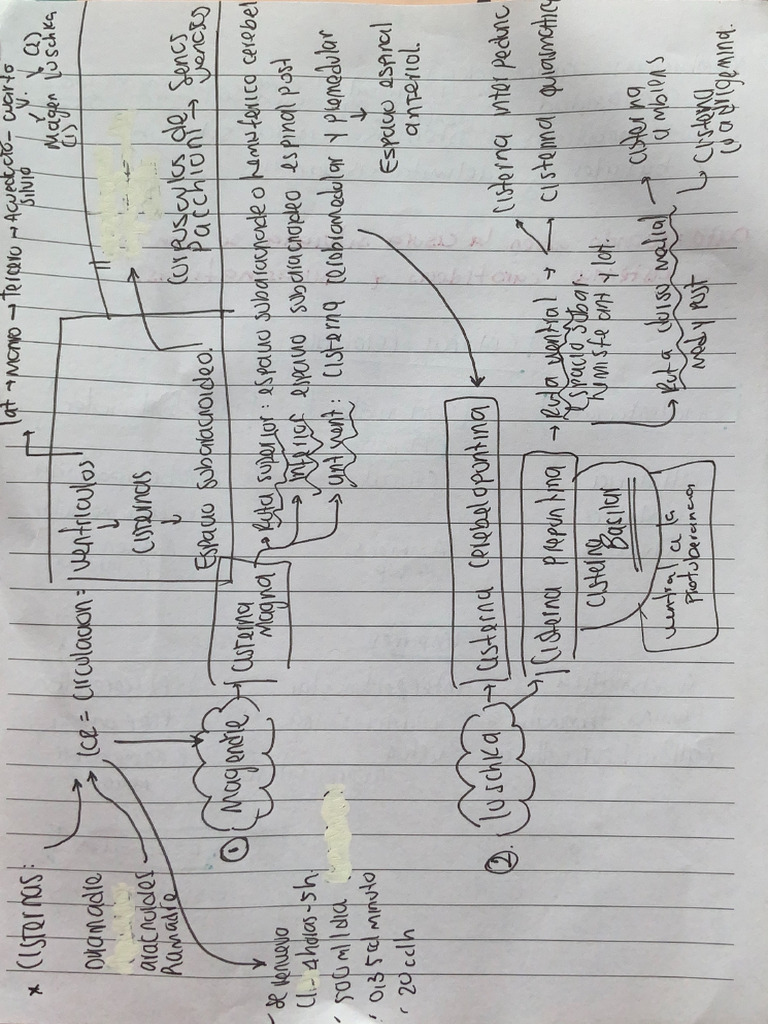 * CISTERNAS:
Duramadre
aracnoides
Piamadre
LCR = circulacion =
ventriculos
cisternas
Espacio subaracnoideo.
lat → monro → tercero → Acueducto - cuarto
silvio
v.
Magen
(1)
luschka
(2)
corpusculos de
Pacchioni → senos
venosos
- se renueva
c/ - 4 horas - 5h.
500 ml / dia
0.35 al minuto
20 cc/h
① Magendie
→ Cisterna
Magna
→ Ruta superior: espacio subaracnoideo hemisferico cerebel
→ inferior espacio subaracnoideo espinal post
→ ant vent: cisterna cerebromedular y premedular
Espacio espinal
anterior.
②. luschka
→ Cisterna cerebelopontina
Cisterna prepontina
cisterna
Basilar
ventral a la
protuberancia
→ Ruta ventral →
Espacio subar
hemisfe ant y lat.
Cisterna interpedunc
Cisterna quiasmatica
→ Ruta dorso medial
med y post
→ cisterna
ambiens
Cisterna
cuadrigemina.